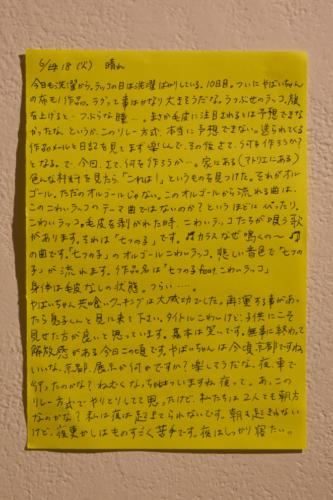 6/24 18 (火) 晴れ
今日も洗濯から。ラッコの日は洗濯ばかりしている。10日目。ついにやばいちゃん
の布モノ作品。ラグって事はかなり大きそうだな。うつぶせのラッコ。顔
を上げると…つぶらな瞳…。まさか毛皮に注目されるとは予想できな
かったな、というか、このリレー方式、本当に予想できない。送られてくる
作品のメールと日記を見てまず楽しんで、その後 さて、何を作ろうか?
となる。で、今回、さて、何を作ろうか…。家にある(アトリエにある)
色んな材料を見たら「これは!」というものを見つけた。それがオル
ゴール。ただのオルゴールじゃない。このオルゴールから流れる曲は、
このこわいラッコのテーマ曲ではないのか?というほどにぴったり。
こわいラッコ。毛皮を剥がれた時、こわいラッコたちが唄う歌
があります。それは「七つの子」です。♪カラス なぜ鳴くの〜♪
の曲です。"七つの子"のオルゴールこわいラッコ。悲しい音色で「七つの
子」が流れます。作品名は「七つの子 こわいラッコ」
身体は毛皮なしの状態。つらい….。
やばいちゃん共喰いクッキングは大成功でした。再演する事があっ
たら息子くんと見に来て下さい。タイトルこわいけど、子供にこそ
見せた方が良いと思っています。基本は笑いです。無事に終わって
解放感がある今日この頃です。やばいちゃんは今頃京都ですね。
いいな、京都。展示か何かですか?楽しそうだな。夜、車で
行ったのかな?ねむくなっちゃいますね、夜って。あ、この
リレー方式でやりとりしてて思ったけど、私たちは2人でも朝方
なのかな?私は夜は起きてられないです。朝も起きれない
けど、夜更かしはものすごく苦手です。夜はしっかり寝たい。